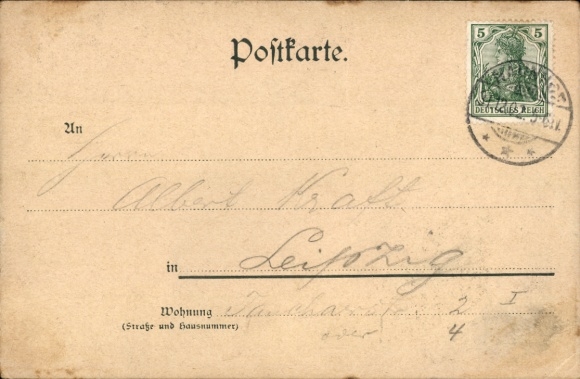 Postkarte.
5 5
DEUTSCHES REICH
An
Herrn
Albert Kraft
in Leipzig
Wohnung 2 I
(Straße und Hausnummer) oder 4